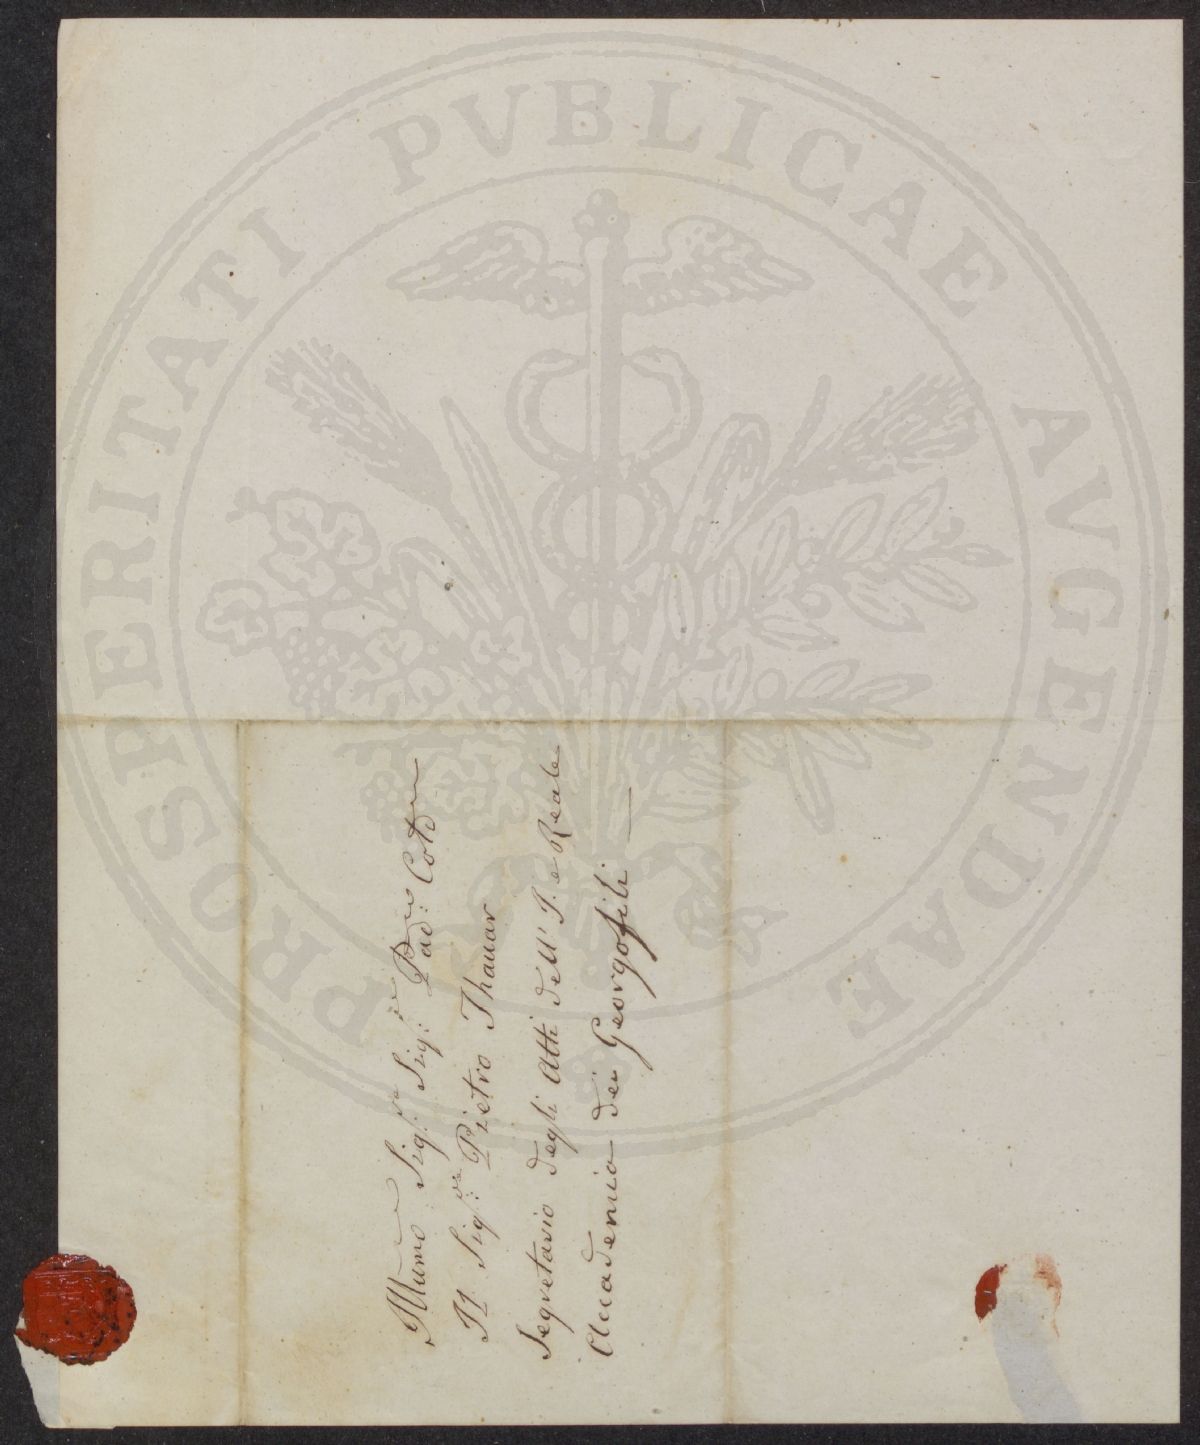 PROSPERITATI PVBLICAE AVGENDAE
Illumo Sig:re Sig:re Pad:ne Colo
Il Sig:re Pietro Thauar
Segretario degli Atti dell' I. e Reale
Accademia dei Georgofili